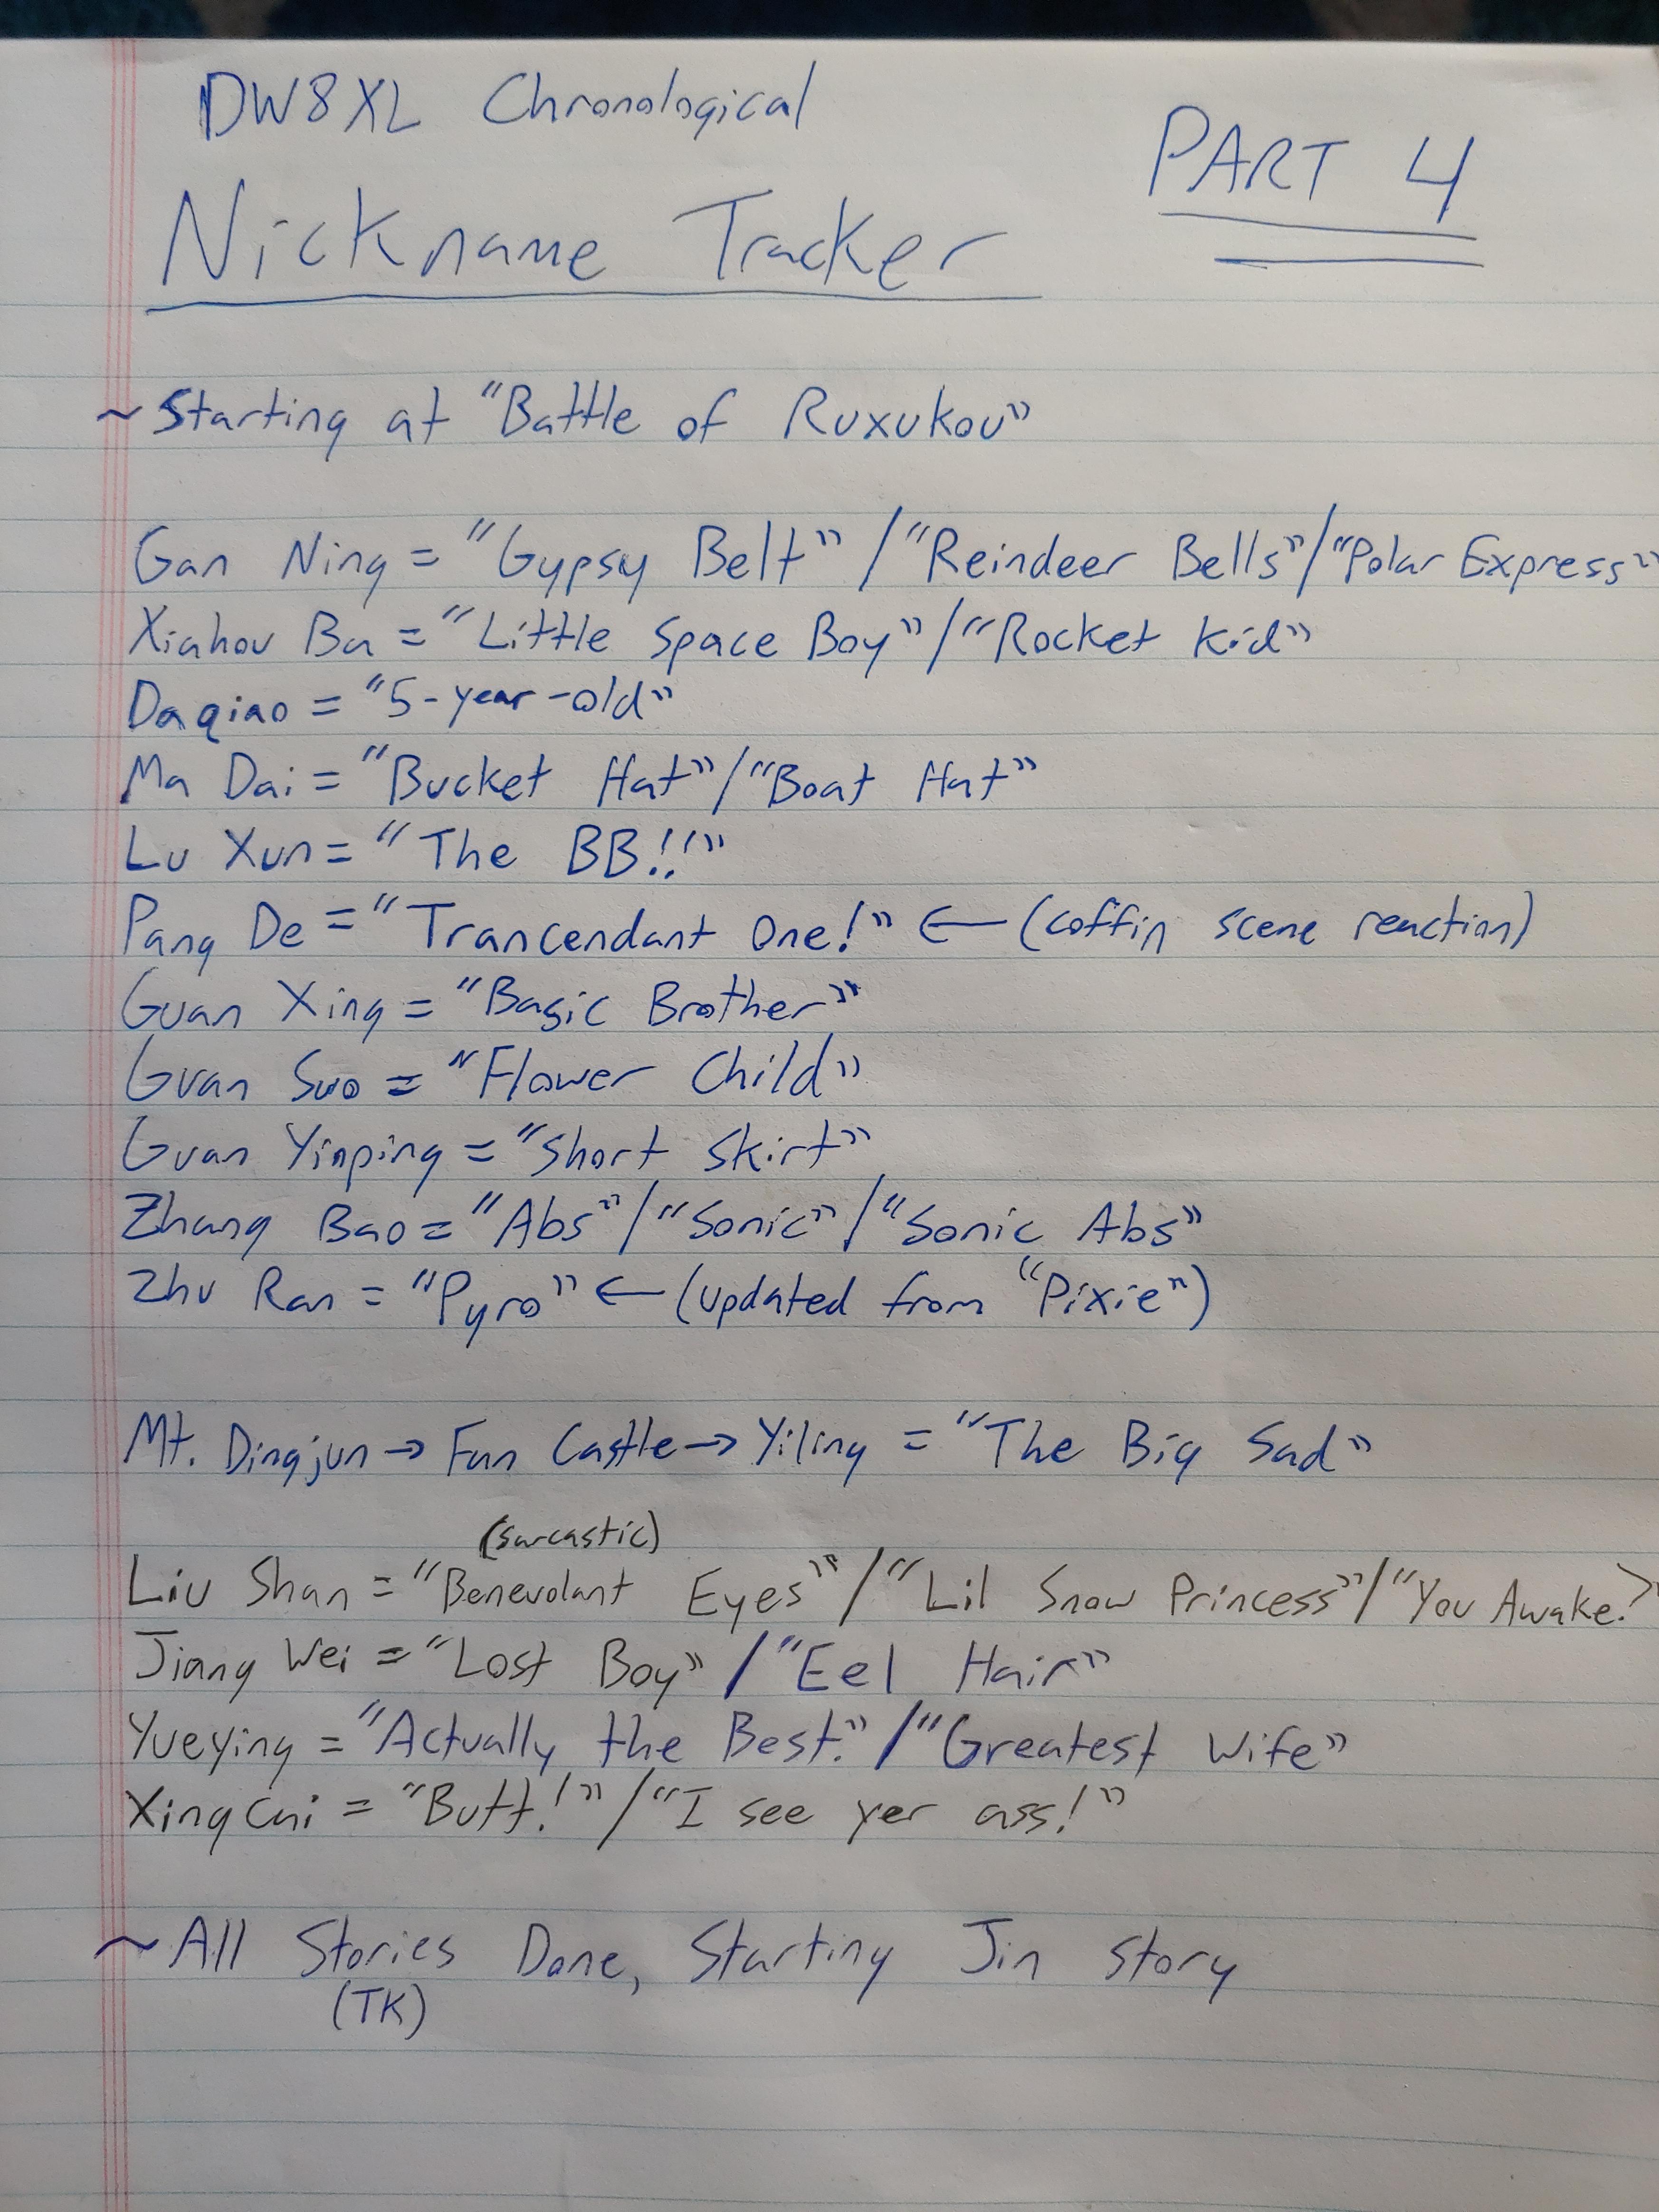 DW8XL Chronological
PART 4
Nickname Tracker
~Starting at "Battle of Ruxukou"
Gan Ning = "Gypsy Belt" / "Reindeer Bells" / "Polar Express"
Xiahou Ba = "Little Space Boy" / "Rocket Kid"
Daqiao = "5-year-old"
Ma Dai = "Bucket Hat" / "Boat Hat"
Lu Xun = "The BB!!"
Pang De = "Trancendant One!" ← (coffin scene reaction)
Guan Xing = "Basic Brother"
Guan Suo = "Flower Child"
Guan Yinping = "Short Skirt"
Zhang Bao = "Abs" / "Sonic" / "Sonic Abs"
Zhu Ran = "Pyro" ← (updated from "Pixie")
Mt. Dingjun → Fan Castle → Yiling = "The Big Sad"
(sarcastic)
Liu Shan = "Benevolant Eyes" / "Lil Snow Princess" / "You Awake?"
Jiang Wei = "Lost Boy" / "Eel Hair"
Yueying = "Actually the Best." / "Greatest Wife"
Xingcai = "Butt!" / "I see yer ass!"
~All Stories Done, Starting Jin Story
(TK)